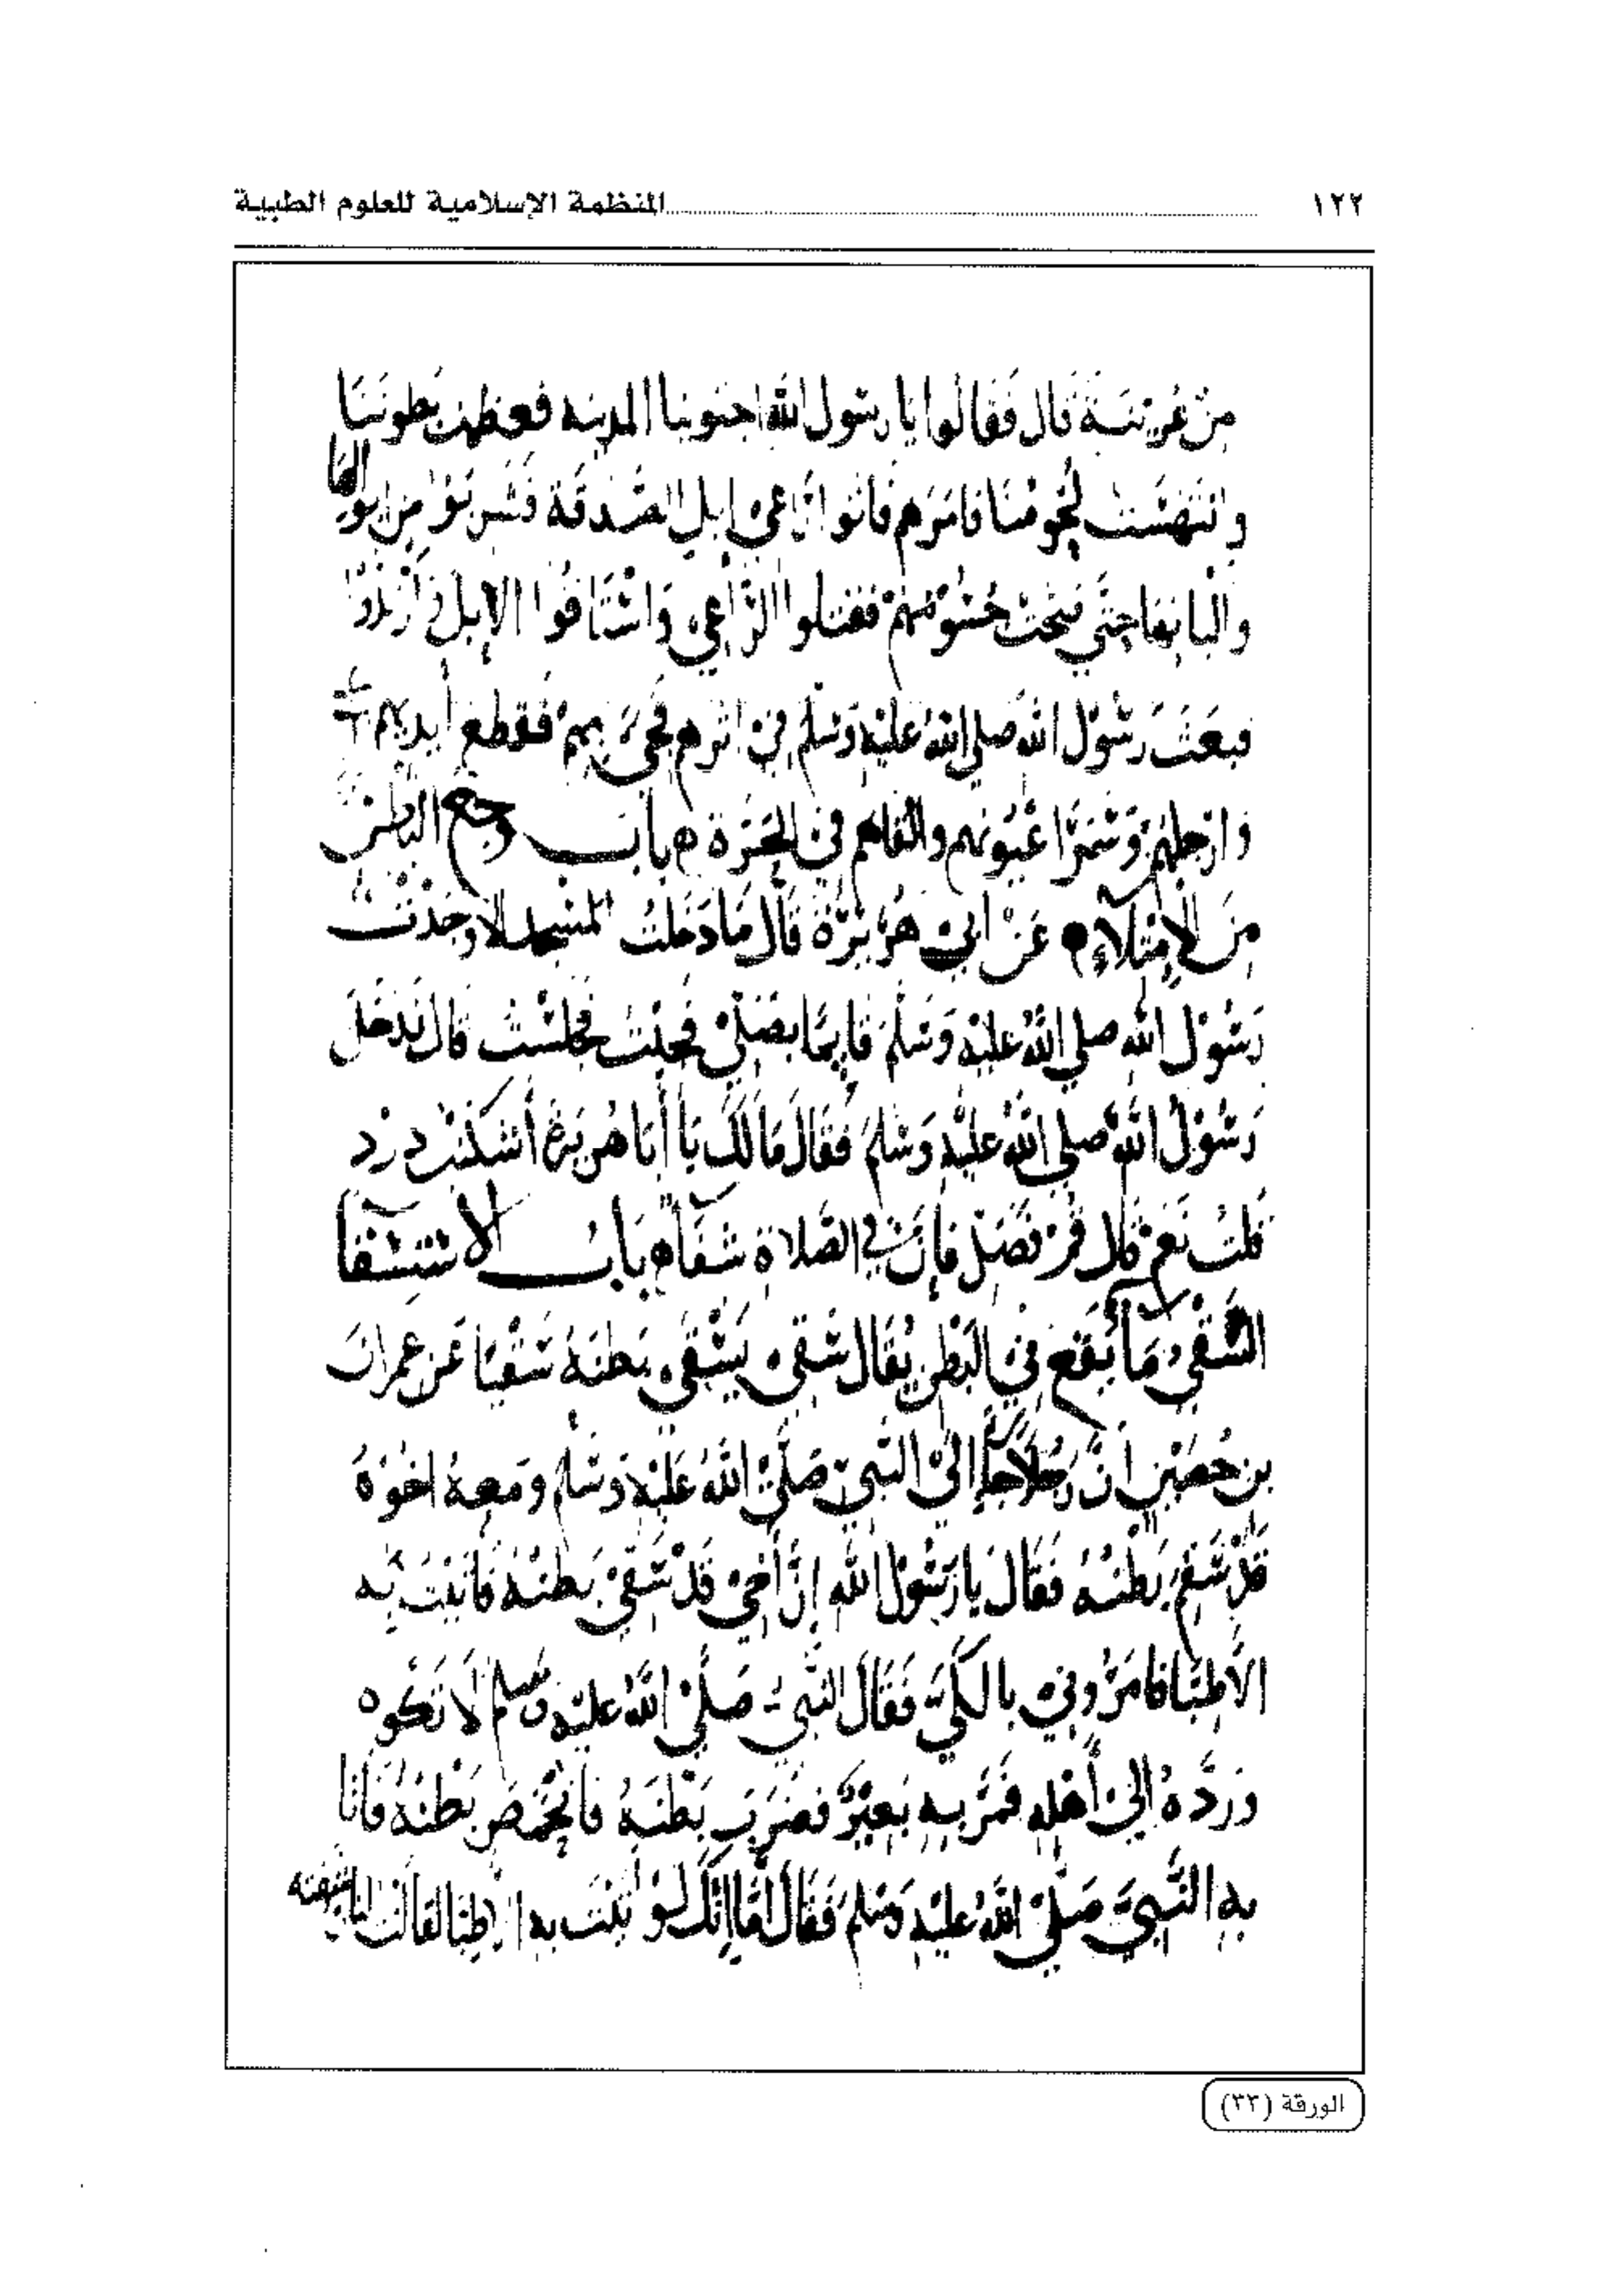 ١٢٢ المنظمة الإسلامية للعلوم الطبية
من عرينة قال فقالوا يا رسول الله اجتوينا المدينة فعظمت بطوننا
وانتهشت لحومنا فامرهم فاتوا راعي ابل الصدقة فشربوا من ابوالها
والبانها حتى فقتلوا الراعي واستاقوا الإبل وارتدوا
فبعث رسول الله صلى الله عليه وسلم في اثرهم فجيء بهم فقطع أيديهم
وارجلهم وسمر اعينهم والقاهم في الحرة ه باب وجع البطن
من الإمتلاء ه عن ابي هريرة قال ما دخلت المسجد الا وجدت
رسول الله صلى الله عليه وسلم قايما يصلي فجئت فجلست قال فدخل
رسول الله صلى الله عليه وسلم فقال مالك يا أبا هريرة أشكنب درد
قلت نعم قال قم فصل فإن في الصلاة شفآء ه باب الاستسقا
السقي ما يقع في البطن يقال سقى يسقى بطنه سقيا عن عمران
بن حصين ان رجلا جا الى النبي صلى الله عليه وسلم ومعه اخوه
قد سقي بطنه فقال يا رسول الله إن أخي قد سقي بطنه فاتيت به
الأطبا فامروني بالكي فقال النبي صلى الله عليه وسلم لا تكوه
ورده الى أهله فمر به بعير فضرب بطنه فانخمص بطنه فاتا
به النبي صلى الله عليه وسلم فقال أما إنك لو أتيت به الاطبا لقالت النار شفته
الورقة (٣٣)